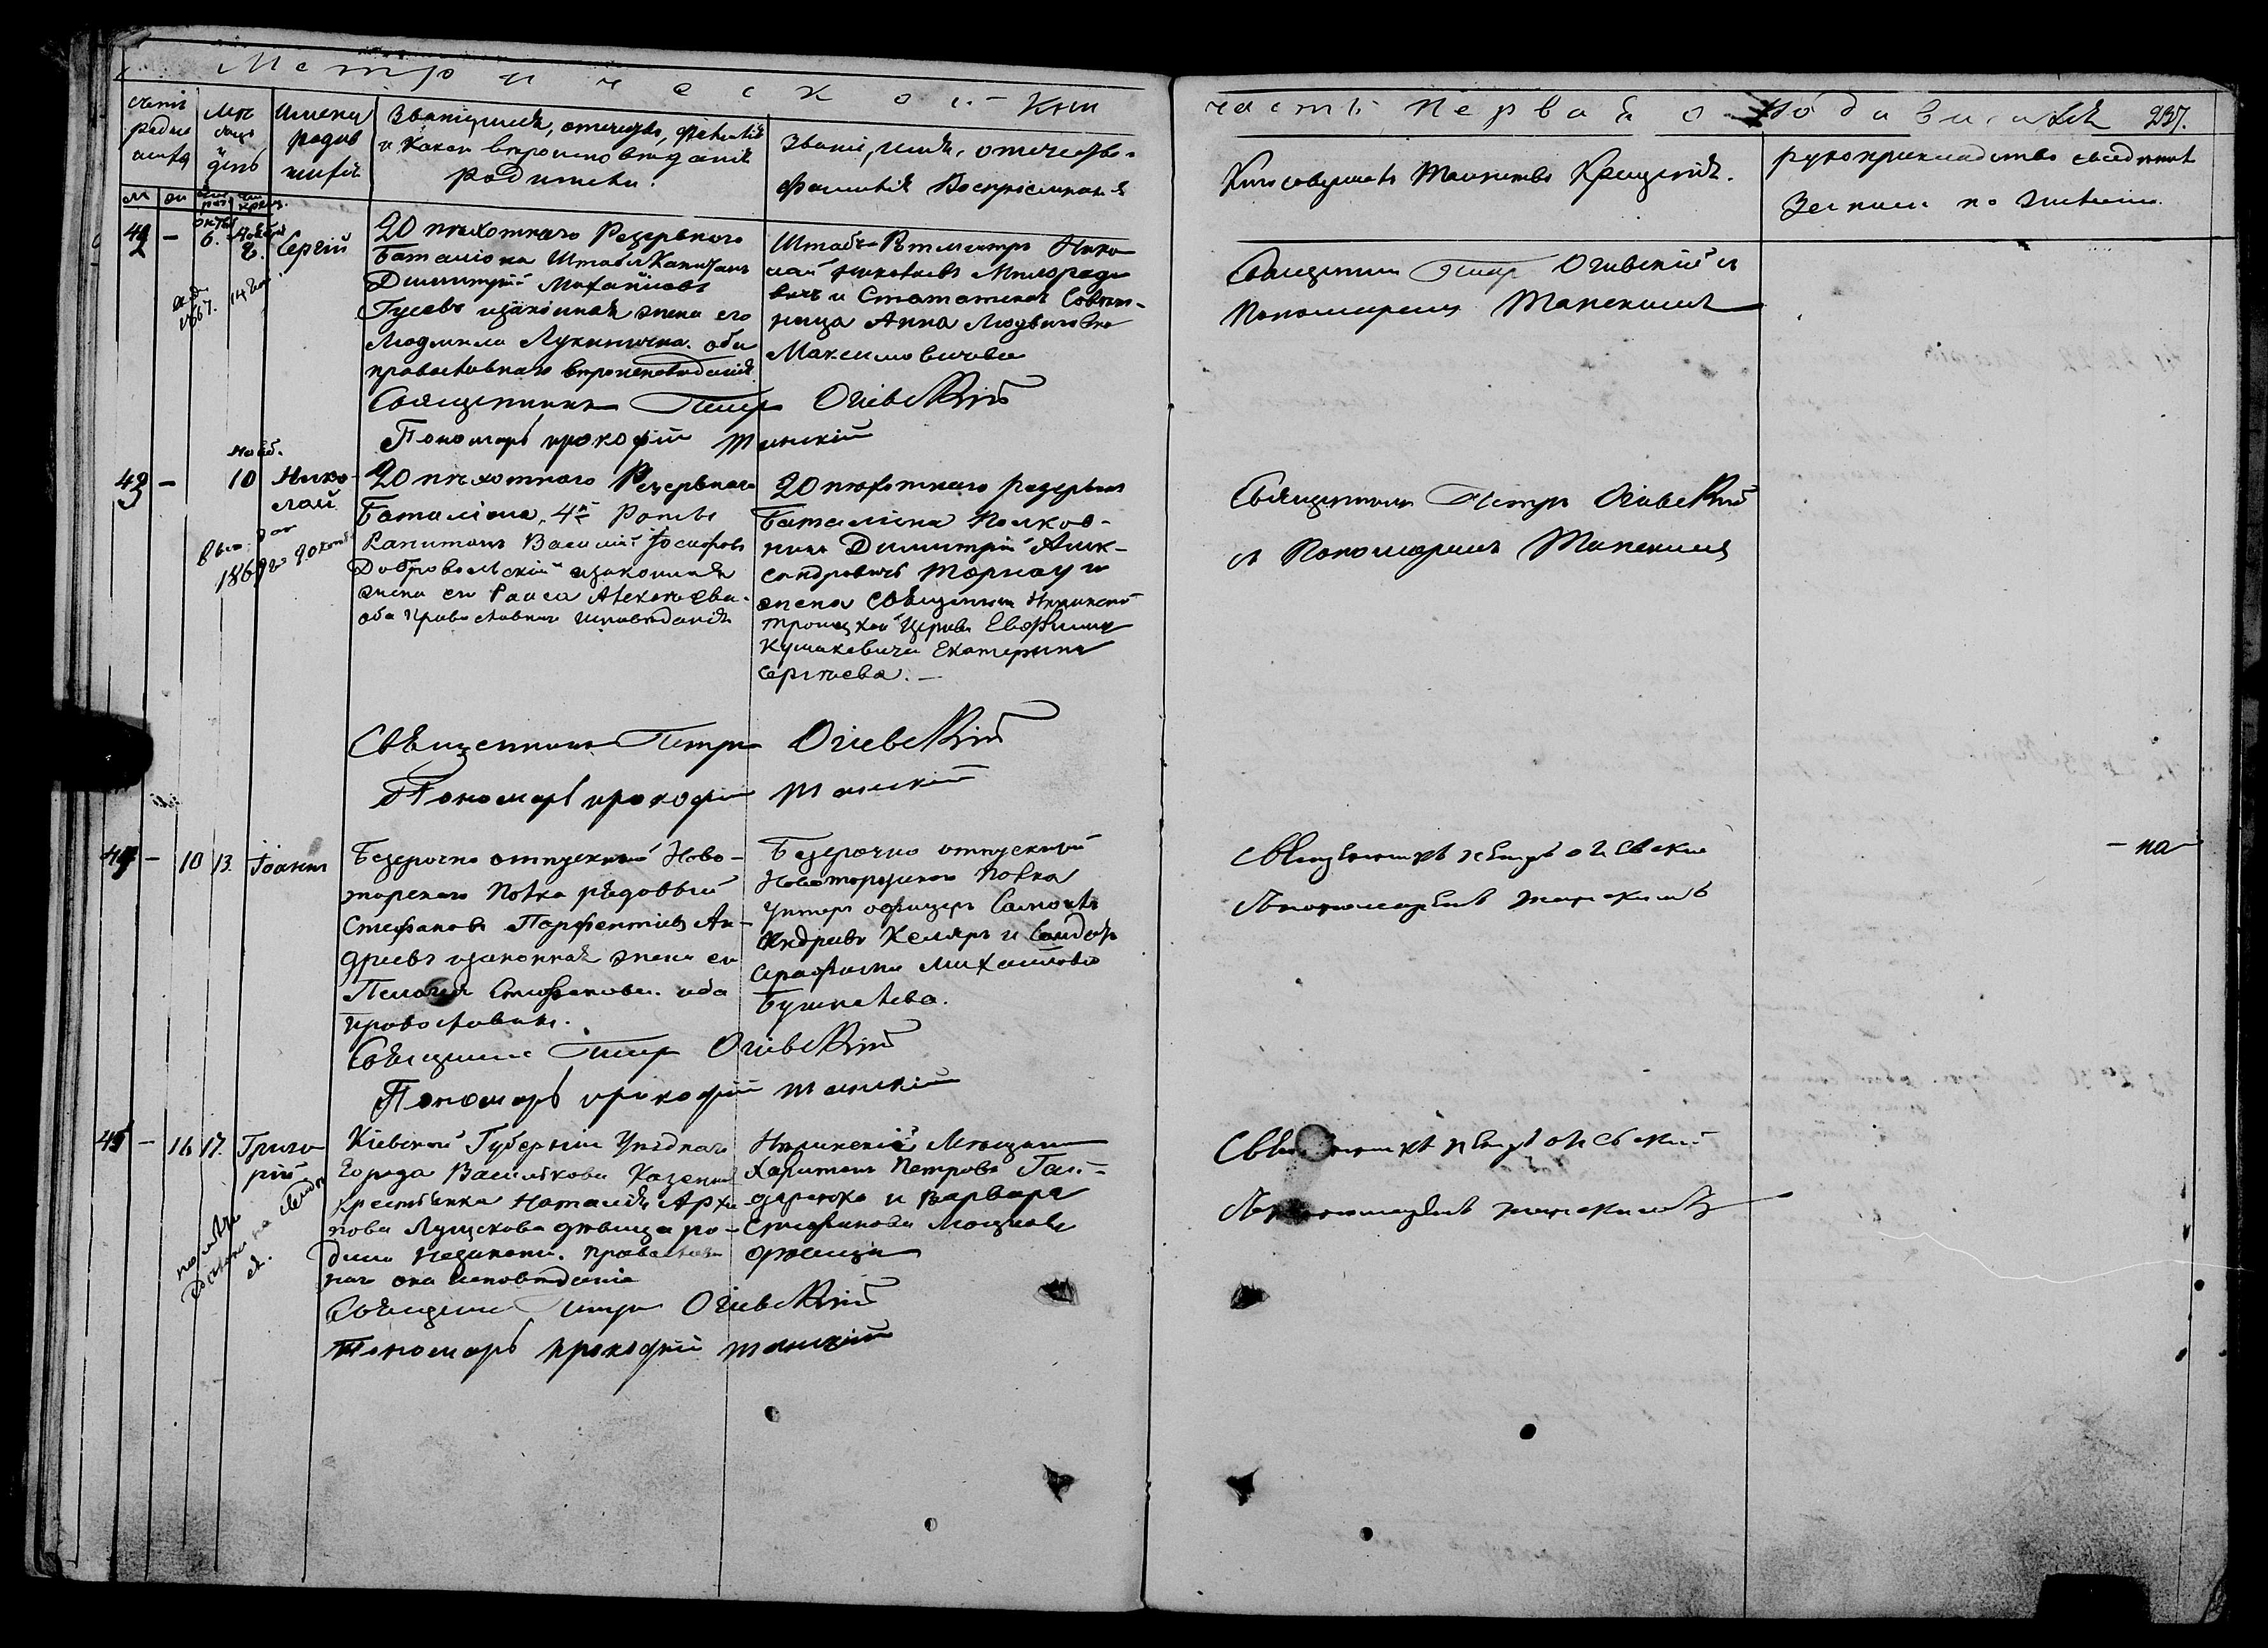 Метрической Кни
часть первая о родившихся 237.
счетъ родив
Мѣсяцъ и день
Имена родив
Званіе, имя, отчество, фамилія
и какого вѣроисповѣданія
родители.
Званіе, имя, отчество
фамилія Воспріемников
Кто совершалъ Таинство Крещенія.
рукоприкладство свидѣтелей
записи по желанію
м
42 – 6. Сергій
20 пѣхотнаго Резервнаго
Баталіона Штабсъ Капитанъ
Димитрій Михайловъ
Гусевъ и законная жена его
Людмила Лукинична. оба
православнаго вѣроисповѣданія
Штабъ-Ротмистръ Нико
лай Милоради
вичъ и Статская Совѣт-
ница Анна Людвиговна
Максимовичева
Священникъ Петръ Огіевскій съ
Пономаремъ Танскимъ
Священникъ Петръ Огіевскій
Пономарь Прокофій Танскій
Нояб.
43 – 10 Нико-
лай
20 пѣхотнаго Резервнаго
Баталіона, 4й Роты
Капитанъ Василій Іосифовъ
Добровольскій и законная
жена его Раиса Алексѣева.
оба Православнаго исповѣданія
20 пѣхотнаго резервн
Баталіона Полков-
никъ Димитрій Алек-
сандровичъ Торнау и
жена священника Нѣжинской
Троицкой Церкви Евфимія
Кушакевича Екатерина
Сергѣева. –
Священникъ Петръ Огіевскій
съ Пономаремъ Танскимъ
Священникъ Петръ Огіевскій
Пономарь Прокофій Танскій
44 – 10 13. Іоаннъ
Безсрочно отпускный Ново-
торскаго Полка рядовый
Стефановъ Парфентій Ан-
дреевъ и законная жена его
Пелагія Стефанова. оба
православны.
Безсрочно отпускный
Новоторжскаго Полка
Унтеръ офицеръ
Андреевъ Келяръ и
Серафима Михайлова
Бушнева.
Священникъ Петръ Огіевскій
Спономаремъ Танскимъ
– на
Священникъ Петръ Огіевскій
Пономарь Прокофій Танскій
45 – 16 17. Григо
рій
Кіевской Губерніи Уѣзднаго
Города Василькова Казенная
Крестьянка Наталія Архи
пова Лущекова дѣвица ро-
дила незаконно. Православ
наго она исповѣданія
Нѣжинскій Мѣщанинъ
Харитонъ Петровъ Гай-
и Варвара
Стефанова
Священникъ Петръ Огіевскій
Спономаремъ Танскимъ
Священникъ Петръ Огіевскій
Пономарь Прокофій Танскій